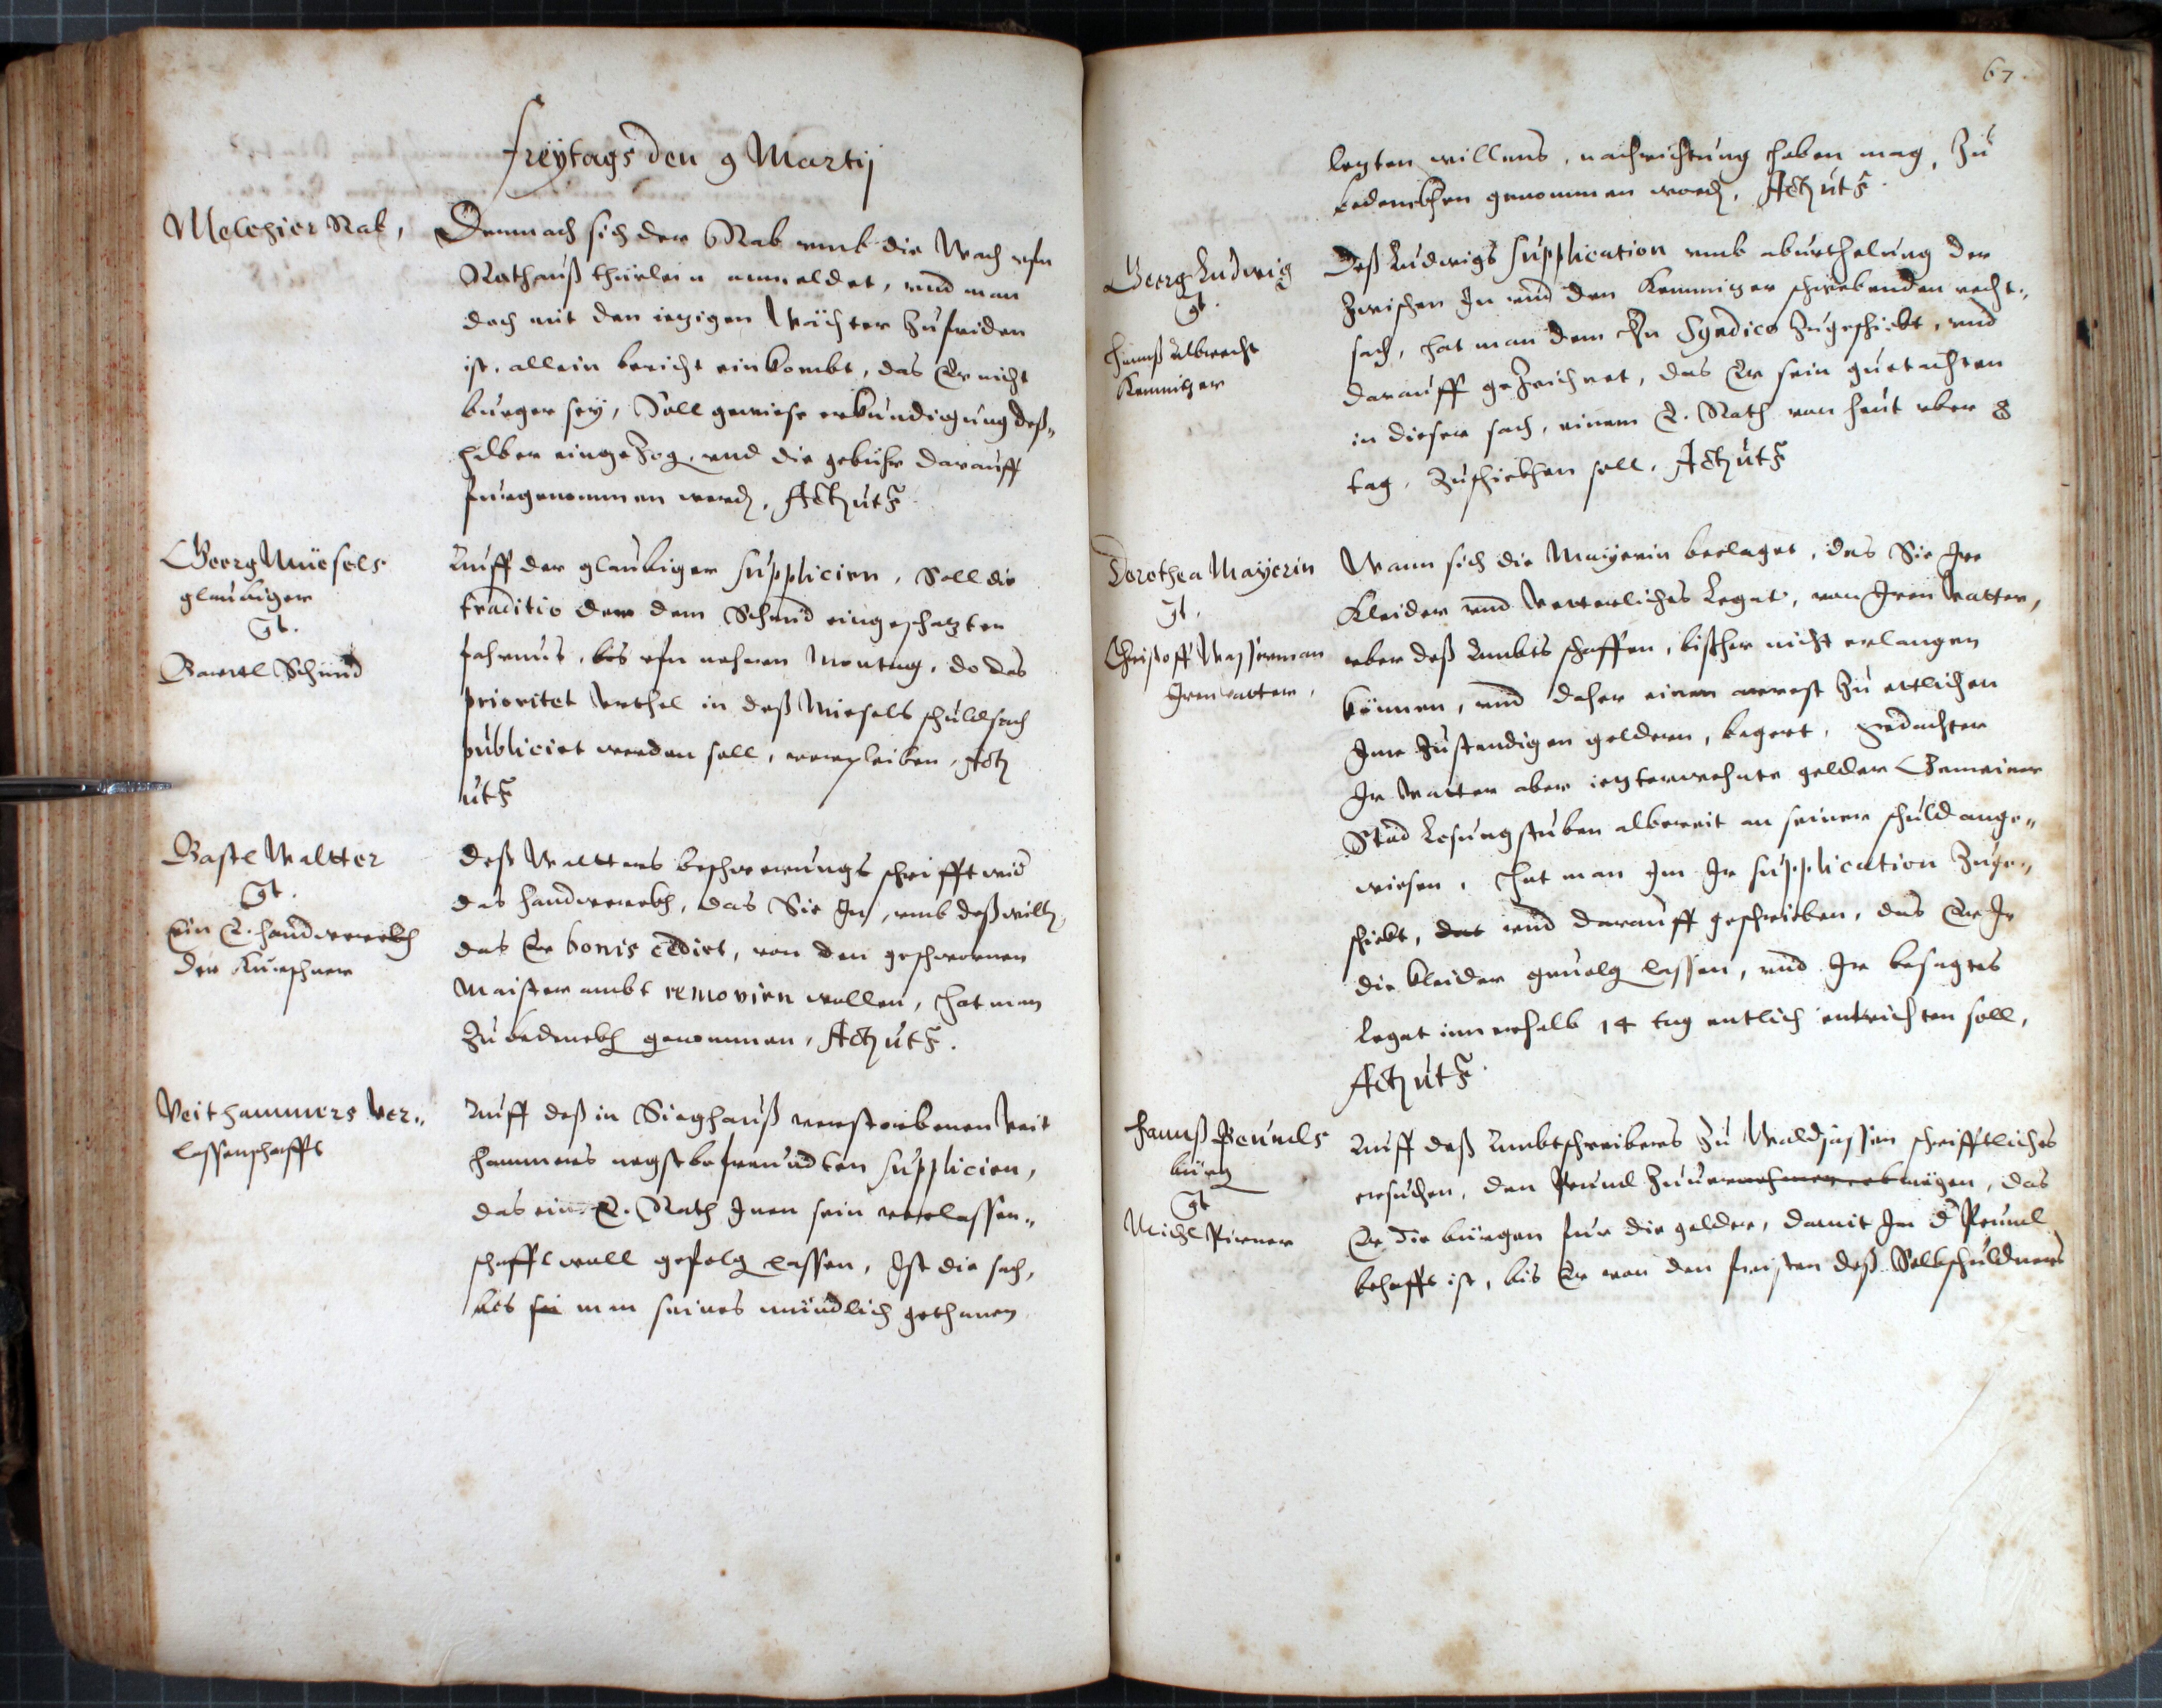 Freÿtags den 9 Martij
Melchior Rab,
Demnach sich der Rab umb die Wach ufm
Rathauß thürlein anmeldet, und man
doch mit den ietzigen Wächter zufriden
ist, allein bericht einkombt, das Er nicht
burger seÿ, Soll gewiese erkundigung deß„
halben eingezog, und die gebühr darauff
furgenommen werd, Act ut s
Georg Müesels
glaubiger
gt.
Bartl Schmid
Auff der glaubiger supplicirn, Soll die
traditio der dem Schmid eingeschatzten
fahrnus, bis ufn nehern Montag, do das
prioritet urthel in deß Miesels schuldsach
publicirt werden soll, verpleiben, Act
ut s
Bastl Waltter
gt.
Ein E. handwerckh
der Kurschner
Deß Waltters beschwerungs schrifft wid
das handwerckh, das Sie In, umb deßwilln,
das Er bonis cedirt, von den geschwornen
Maister ambt removirn wollen, hat man
zu bedenckh genommen, Act ut s.
Veit hammers ver„
lassenschafft
Auff deß in Siechhauß verstorbenen Veit
hammers negst befreundten supplicirn,
das ein E. Rath Inen sein verlassen„
schafft woll gefolg lassen, Ist die sach,
bis man seines mündlich gethanen
67.
letzten willens, nachrichtung haben mag, zu
bedenckhen genommen word, Act ut s.
Georg Ludwig
gt.
Hannß Albrecht
Kemnitzer
Deß Ludwigs supplication umb aburthelung der
zwischen In und den Kemnitzer schwebenden recht„
sach, hat man dem Hn Syndico zugeschickt, und
darauff gezeichnet, das Er sein guetachten
in dieser sach, einem E. Rath von heut uber 8
tag, zuschickhen soll, Act ut s
Dorothea Mayerin
gt.
Christoff Wasserman
Iren vatter,
Wann sich die Mayerin beclaget, das Sie Ire
Kleider und vetterliches Legat, von Iren Vatter,
uber deß Ambts schaffen, bißher nicht erlangen
können, und daher einen arrest zu ettlichen
Ime zustendigen geldern, begert, gedachter
Ir Vatter aber ietzterwehnte gelder Gemeiner
Stad Losungstuben albereit an seiner schuld ange„
wiesen, hat man Im Ir supplication zuge„
schickt, und darauff geschrieben, das Er Ir
die kleider gevolg lassen, und Ir besagtes
Legat innerhalb 14 tag entlich entrichten soll,
Act ut s.
Hannß Peumls
bürg
gt
Michl Pirner
Auff deß Ambtschreibers zu Waldsassen schrifftliches
ersuchen, den Peuml zu mögen, das
Er die bürgen fur die gelder, damit Im d Peuml
behafft ist, bis Er von den fristen deß Selbschuldners